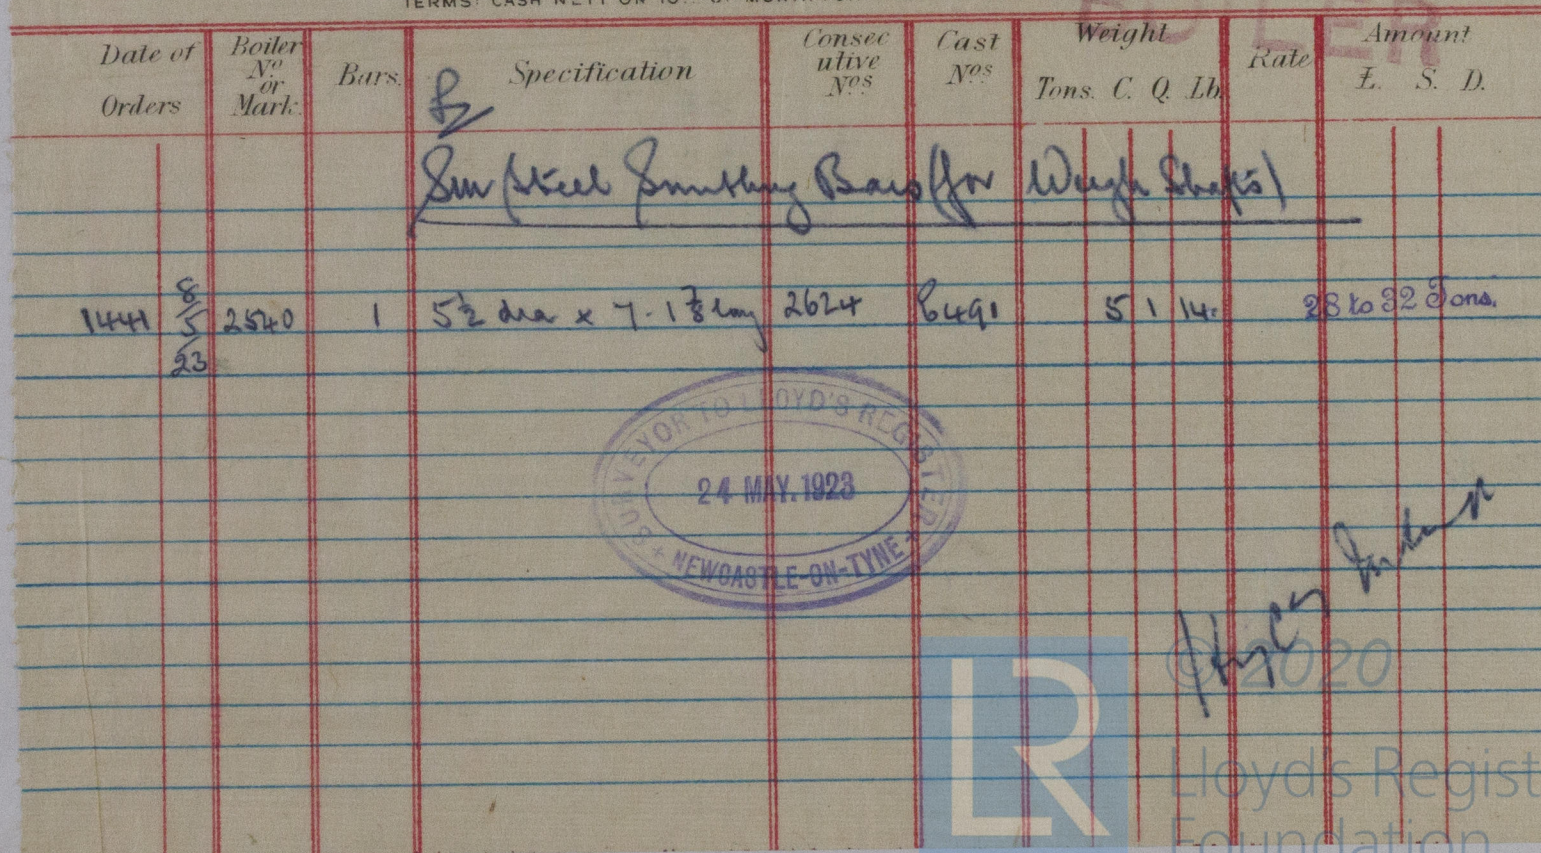 TERMS: CASH NETT ON
Date of Orders
Boiler No or Mark.
Bars.
Specification
Consec utive Nos
Cast Nos
Weight
Tons. C. Q. Lb.
Rate
Amount
£. S. D.
Steel Smithing Bars (for Weigh Shafts)
1441 8/5/23 2540 1 5½ dia x 7-1⅞ long 2624 6491 5 1 14. 28 to 32 Tons.
SURVEYOR TO LLOYD'S REGISTER
24 MAY. 1923
NEWCASTLE-ON-TYNE
LR
© 2020
Lloyd's Regist
Foundation